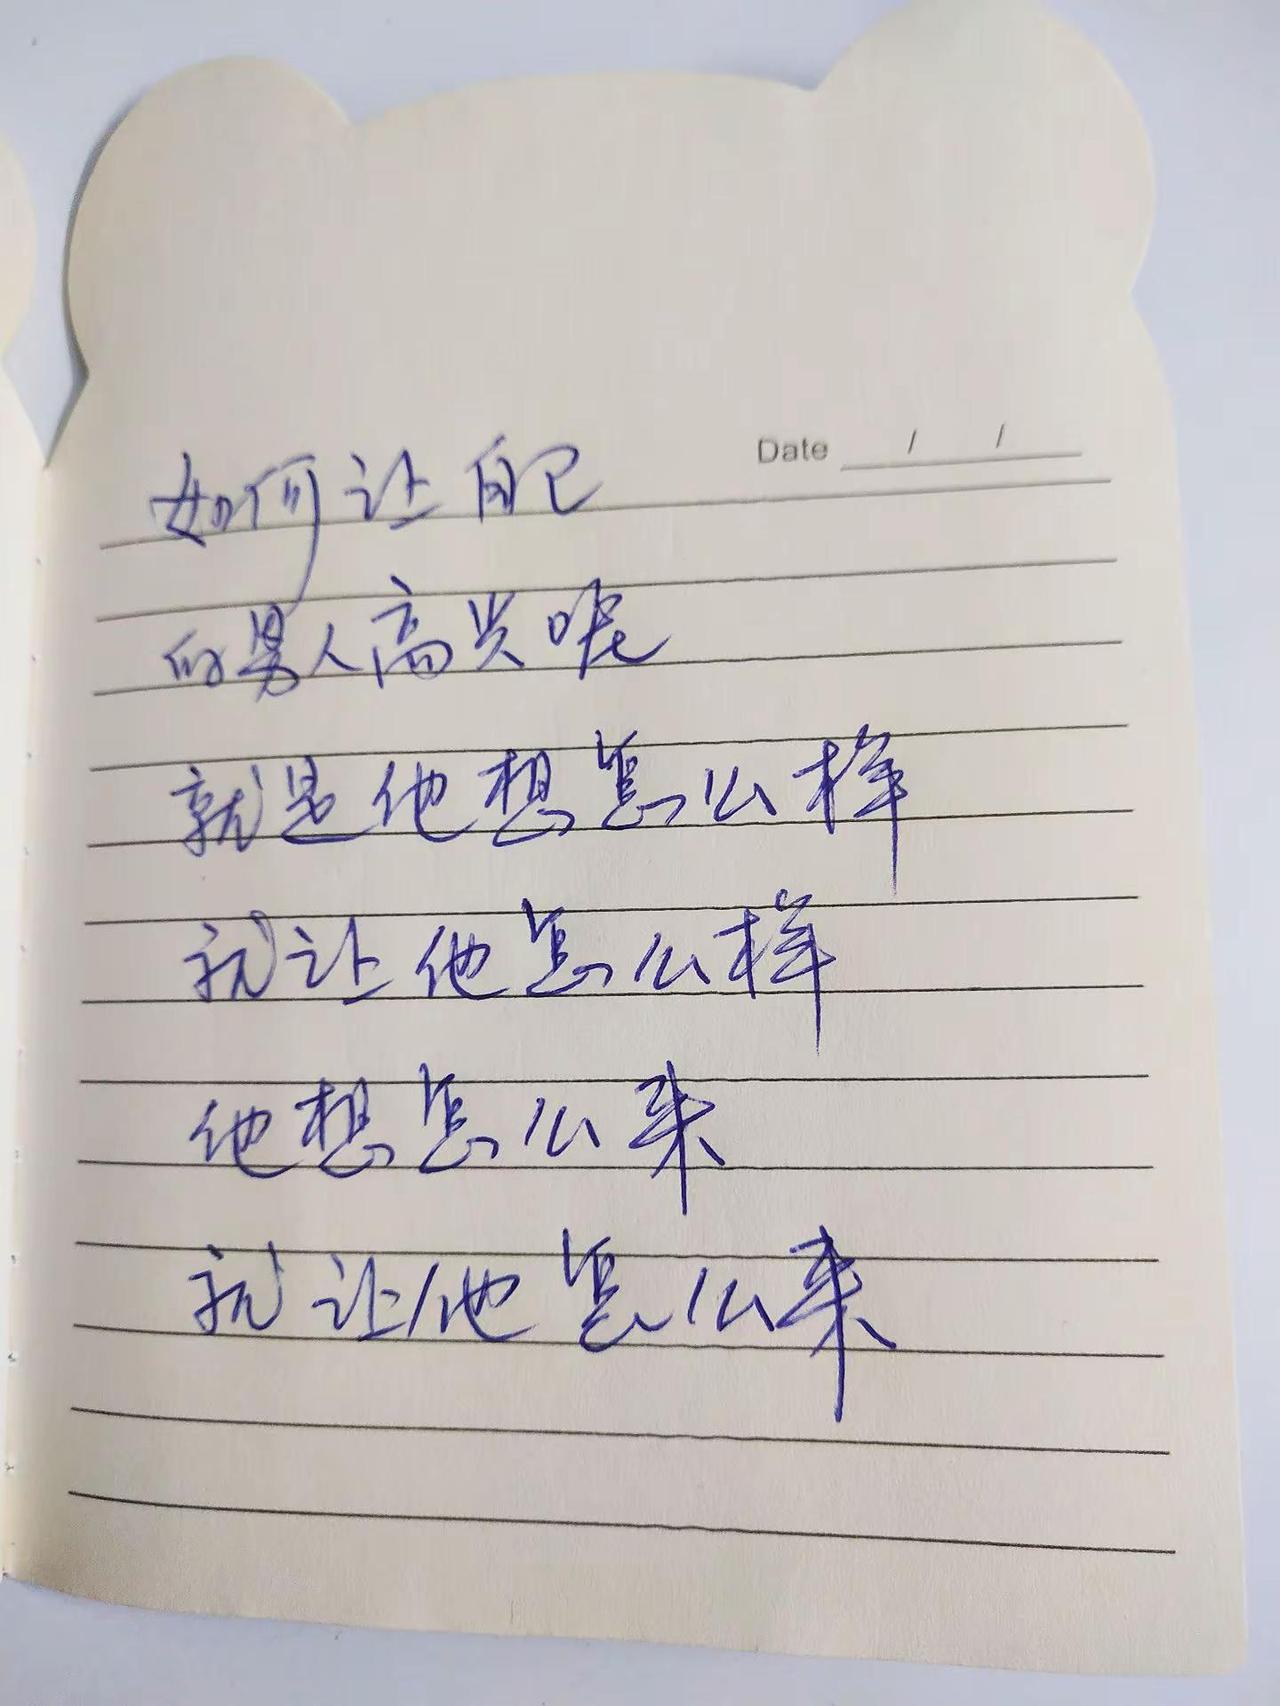 Date / /
如何让自己
的男人高兴呢
就是他想怎么样
就让他怎么样
他想怎么来
就让他怎么来